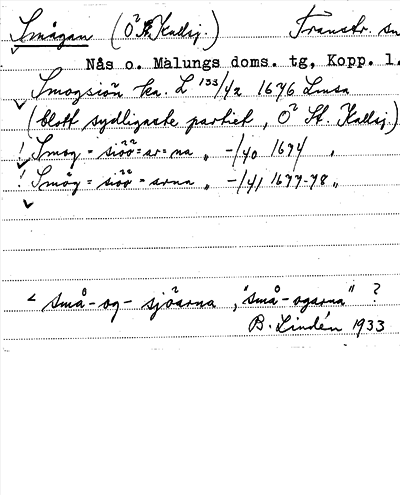 Smågan (Ö² St. Kallsj.) Transtr. sn
Nås o. Malungs doms. tg, Kopp. l.
Smogsiön ka. L 133/42 1676 Lmsa
(blott sydligaste partiet, Ö² St. Kallsj.)
! Smog = siöö=ar=na „ -/40 1674 „
! Smög = siöö = arna „ -/41 1677-78 „
< små-og-sjöarna, "små-ogarna" ?
B. Lindén 1933